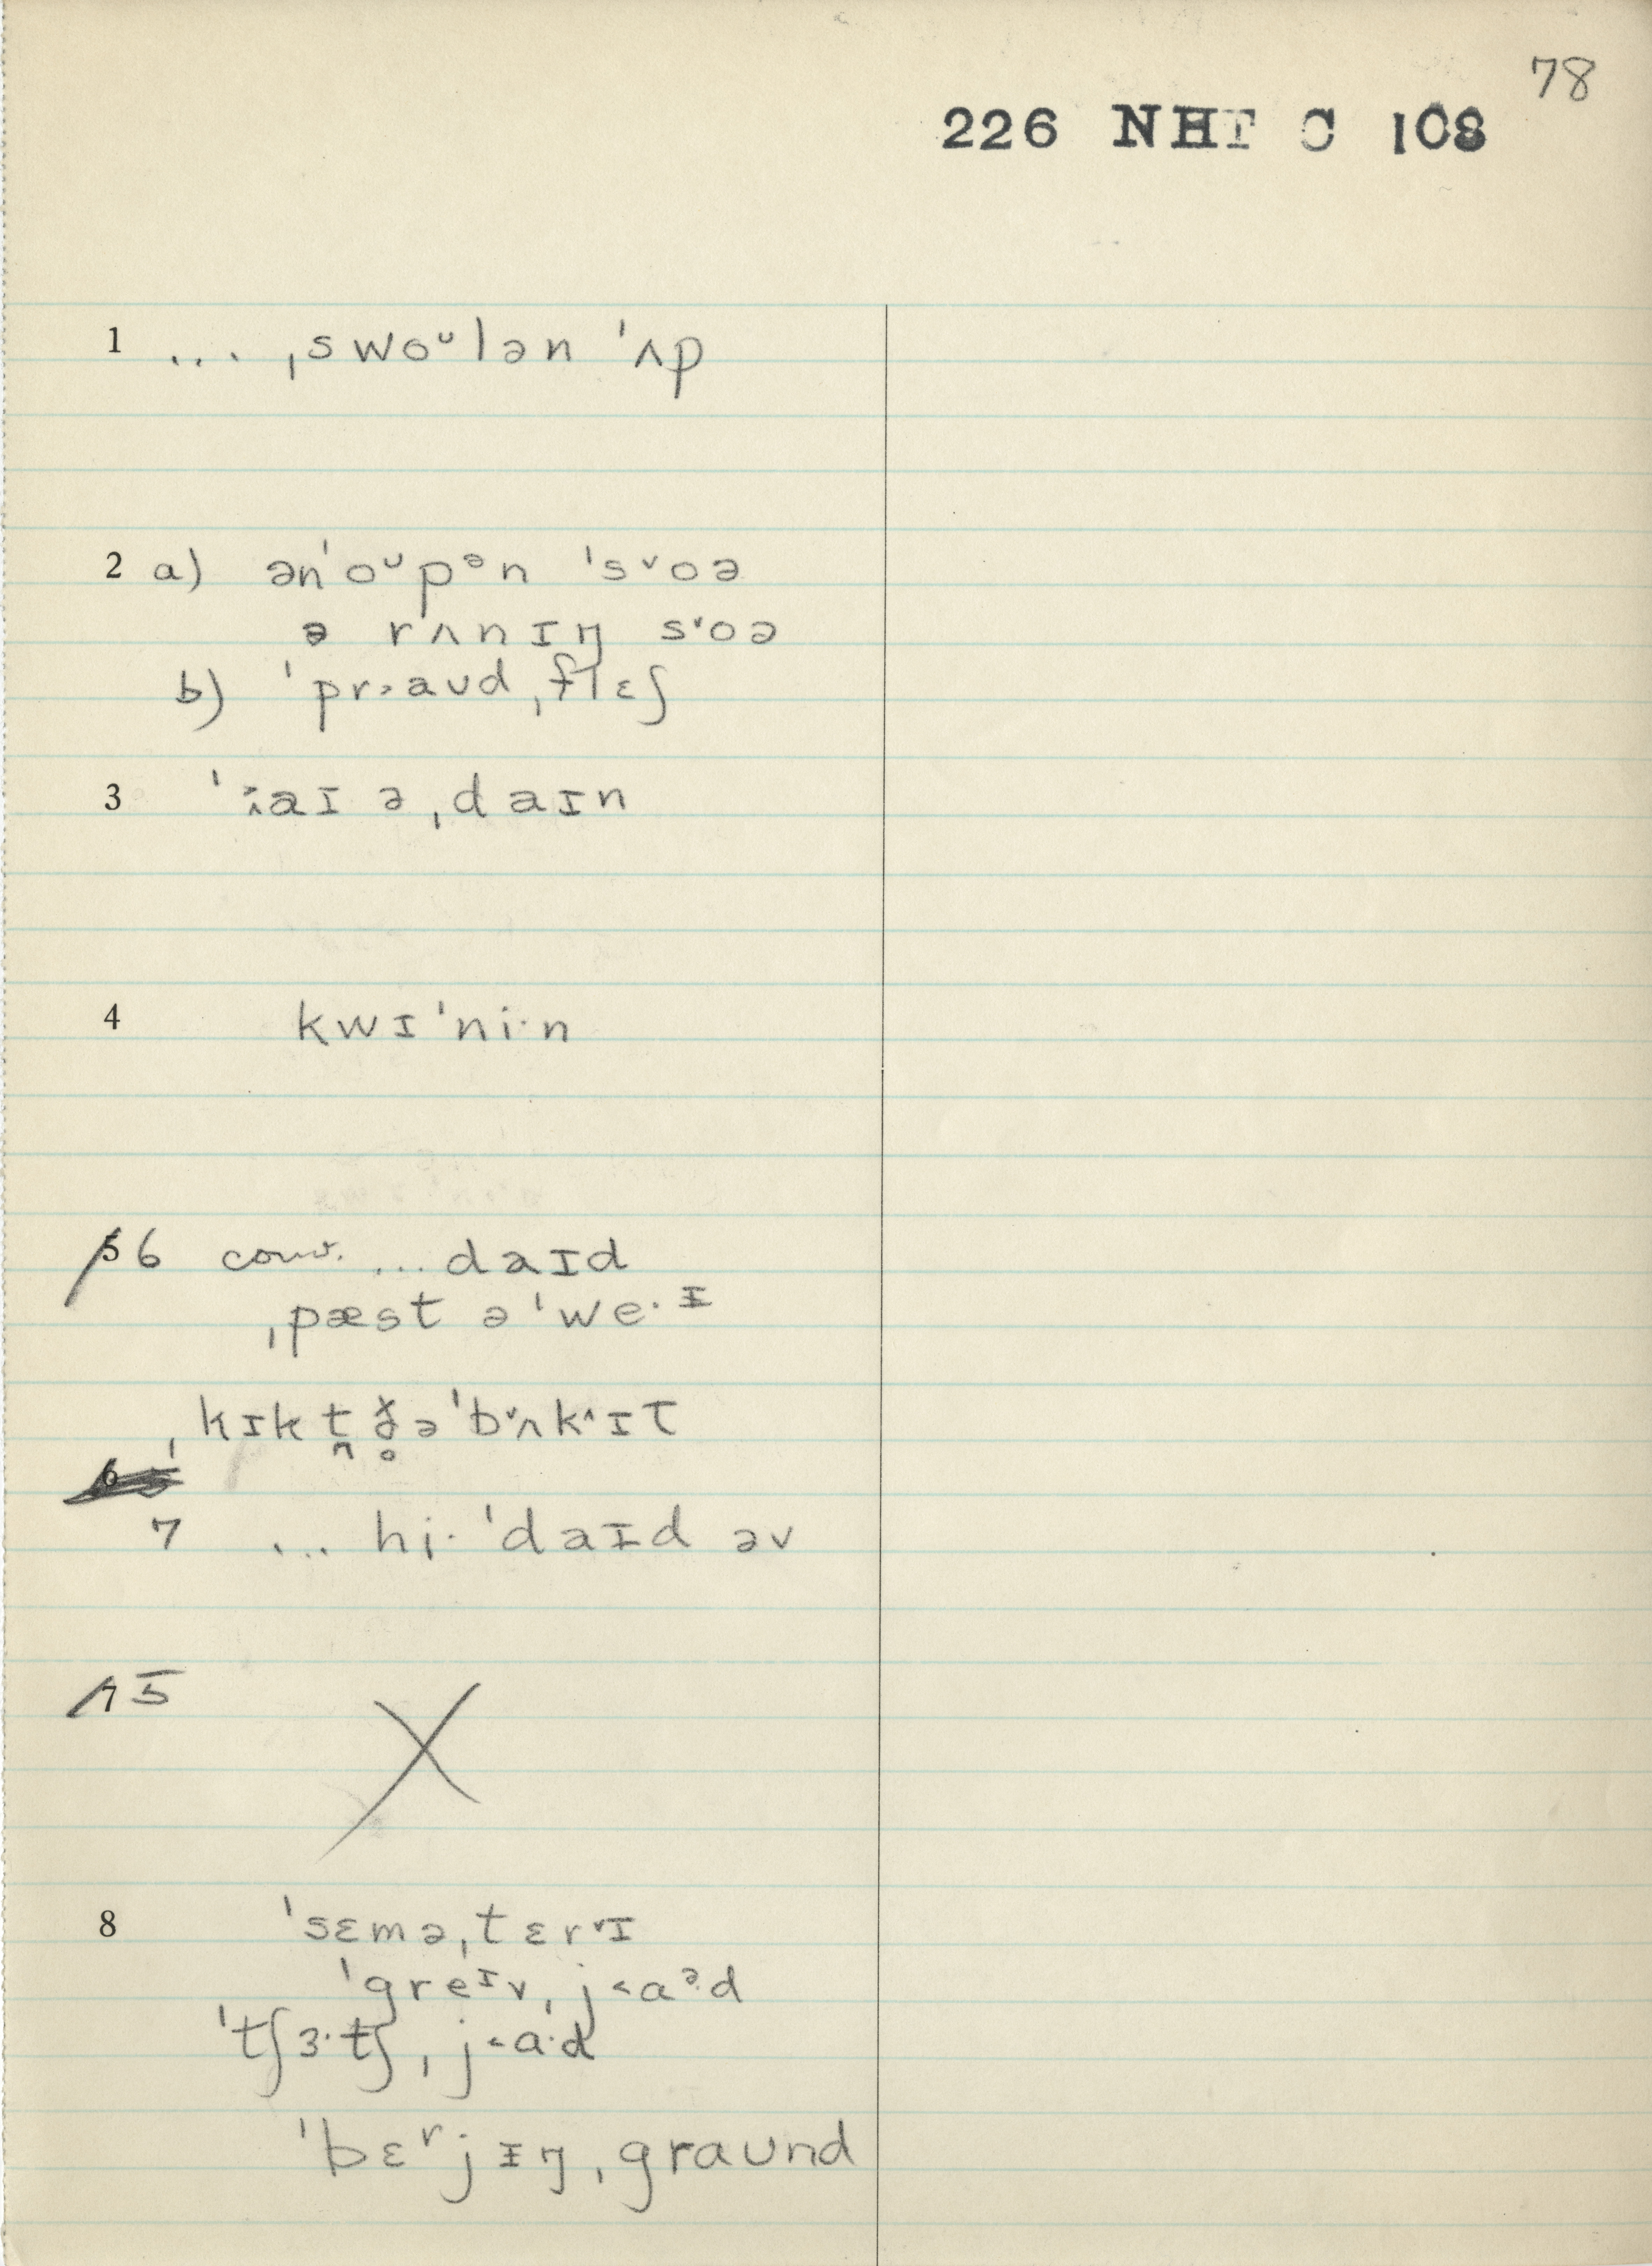 78
226 NHT C 108
1 ... ˌswoᵘlən ˈʌp
2 a) ənˈoᵘpᵊn ˈs˅oə
ə rʌnɪŋ s˅oə
b) ˈpr˃aʊd ˌflɛʃ
3 ˈaɪ ə ˌdaɪn
4 kwɪˈni·n
5 6 conv. ... daɪd
ˌpæst əˈwe·ᵻ
ˌkɪk t̪ ð̥əˈb˅ʌk^ɪt
6
7 ... hi· ˈdaᵻd əv
7 5
X
8 ˈsɛməˌtɛr˅ɪ
ˈgreᶦvˌj˂aᵊ·d
ˈtʃɜ·tʃˌj˂a·d
ˈbɛʳjᵻŋˌgraʊnd